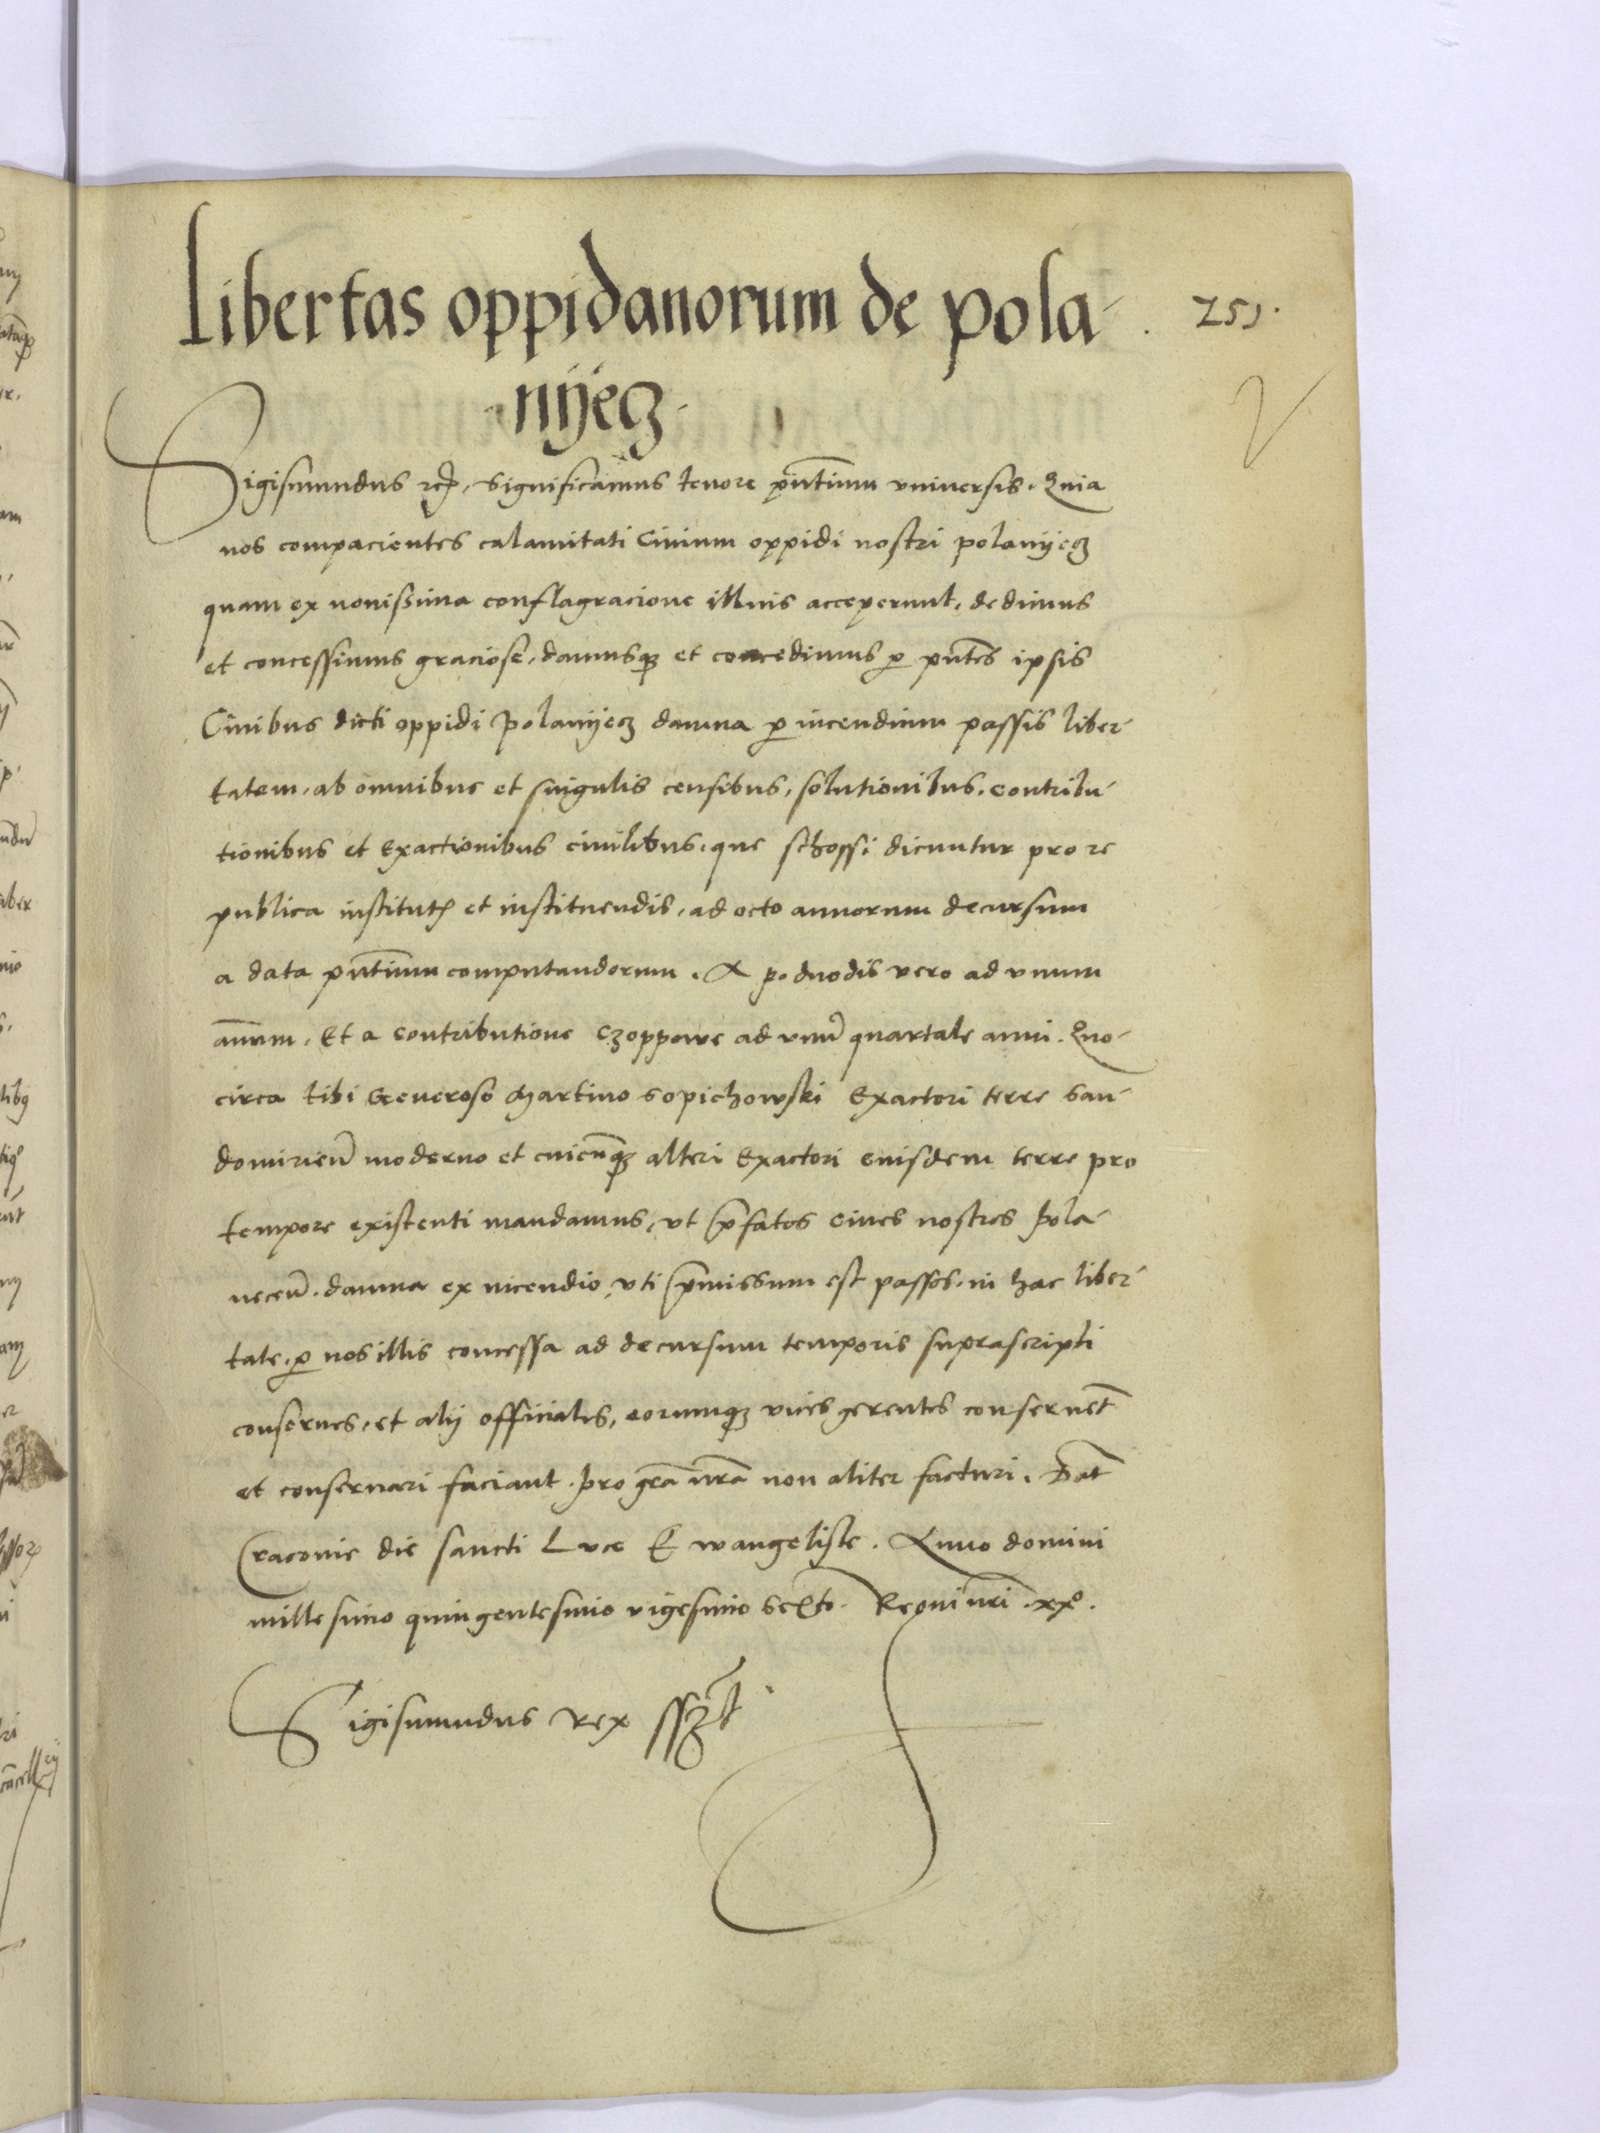 Libertas oppidanorum de Pola-
251.
nyecz
Sigismundus etc. significamus tenore pñtium vniversis. Quia
nos compacientes calamitati Civium oppidi nostri polanyecz
quam ex novissima conflagracione illius acceperunt, dedimus
et concessimus graciose, damusq et concedimus p pñtes ipsis
Civibus dicti oppidi Polanyecz damna p incendium passis liber-
tatem, ab omnibus et singulis censibus, solutionibus, contribu-
tionibus et exactionibus civilibus, que schossi dicuntur pro re
publica institut et instituendis, ad octo annorum decursum
a data pñtium computandorum. A po duodis vero ad vnum
annum. Et a contributione czopowe ad vnu quartale anni. Quo-
circa tibi Generoso Martino Sopichowski Exactori terre San-
domirien moderno et cuicunq alteri Exactori eiusdem terre pro
tempore existenti mandamus, vt pfatos cives nostros Pola-
necen. damna ex incendio, vti pmissum est passos, in hac liber-
tate, p nos illis concessa ad decursum temporis suprascripti
conserves, et alij officiales, eorumq vices gerentes conservet
et conservari faciant. pro gra nra non aliter facturi. Dat
Cracovie die sancti Luce Ewangeliste. Anno domini
millesimo quingentesimo vigesimo sexto. Regni nri. xxo.
Sigismundus Rex sszt